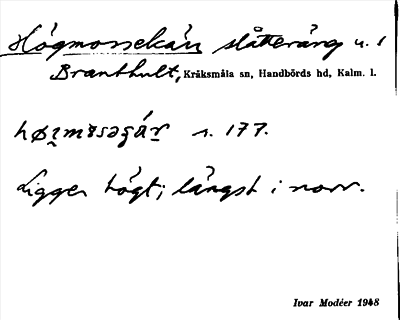 Högmossekärr slåtteräng u. 1
Branthult, Kråksmåla sn, Handbörds hd, Kalm. l.
s. 177.
Ligger högt; längst i norr.
Ivar Modéer 1948